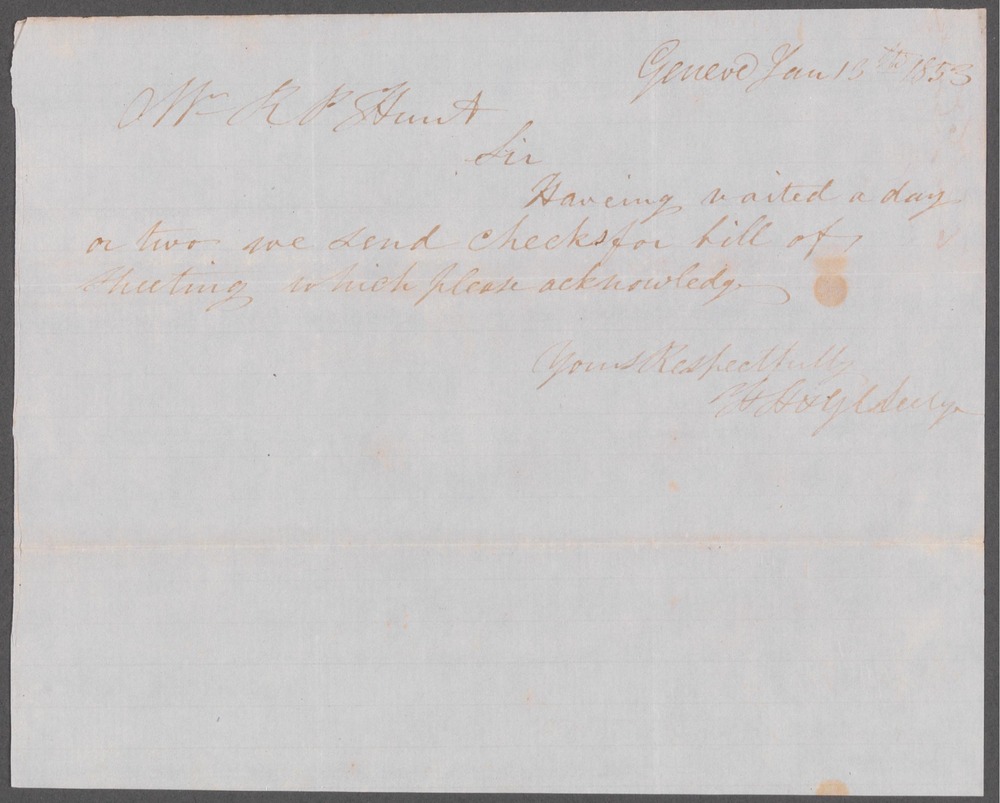 Geneva Jan 13th 1853
Mr R P Hunt
Sir
Haveing waited a day
or two we send checks for bill of
sheeting which please acknowledg
Yours Respectfully
H H & G C Seelye